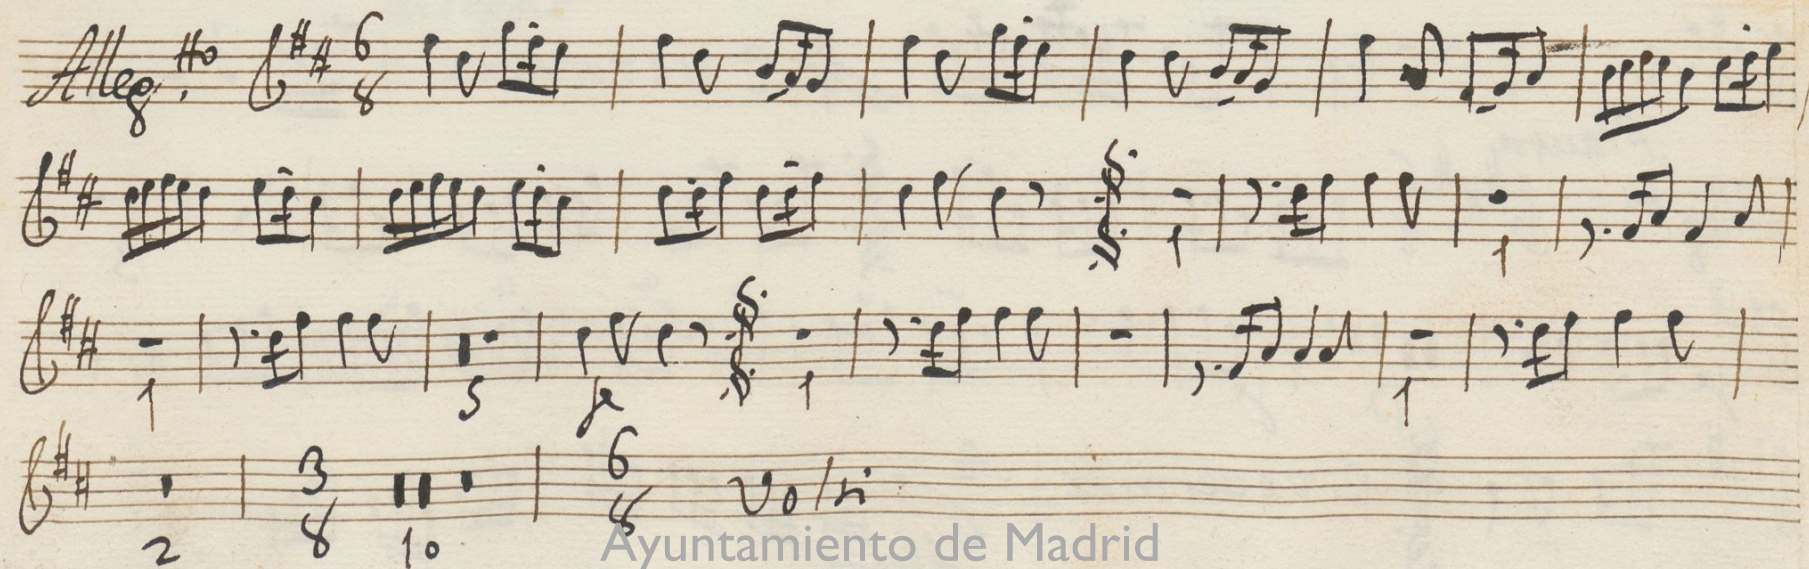 Alleg.tto 6 8
1 1
1 5 fe 1 1
2 3 8 10 6 8 Volti
Ayuntamiento de Madrid